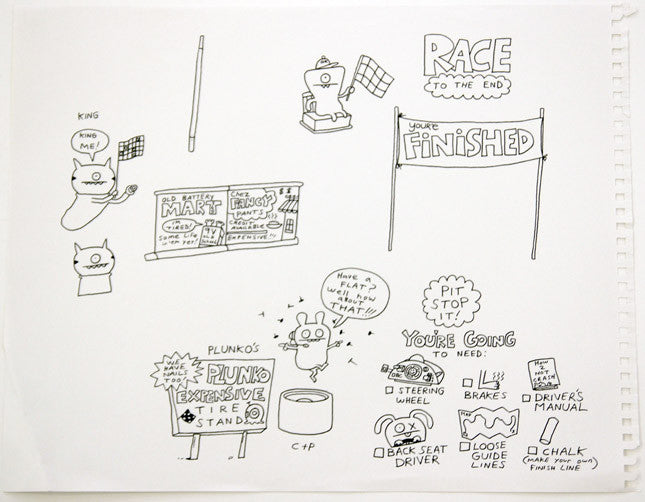 RACE
TO THE END
KING
KING
ME!
YOU'RE
FiNiSHED
OLD BATTERY
MART
I'M
TIRED!
SOME LIFE
IN 'EM YET!
CHEZ
FANCY
PANTS
CREDIT
AVAILABLE
EXPENSIVE!!!
$$
Have a
FLAT?
Well how
about
THAT!!!
PIT
STOP
IT!
YOU'RE GOING
TO NEED:
STEERING
WHEEL
BRAKES
HOW
2
NOT
CRASH
DRIVER'S
MANUAL
BACK SEAT
DRIVER
MAP
LOOSE
GUIDE
LINES
CHALK
(MAKE YOUR OWN)
FINISH LINE
PLUNKO'S
WE
HAVE
NAILS
TOO!
PLUNKO
EXPENSIVE
TIRE
STAND
C+P